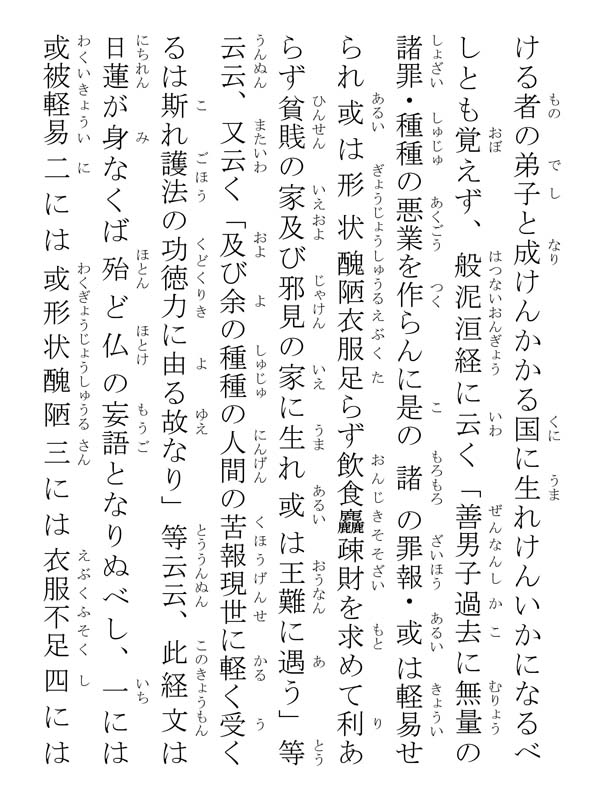 ける者の弟子と成けんかかる国に生れけんいかになるべ
しとも覚えず、般泥洹経に云く「善男子過去に無量の
諸罪・種種の悪業を作らんに是の諸の罪報・或は軽易せ
られ或は形状醜陋衣服足らず飲食麤疎財を求めて利あ
らず貧賎の家及び邪見の家に生れ或は王難に遇う」等
云云、又云く「及び余の種種の人間の苦報現世に軽く受く
るは斯れ護法の功徳力に由る故なり」等云云、此経文は
日蓮が身なくば殆ど仏の妄語となりぬべし、一には
或被軽易二には或形状醜陋三には衣服不足四には